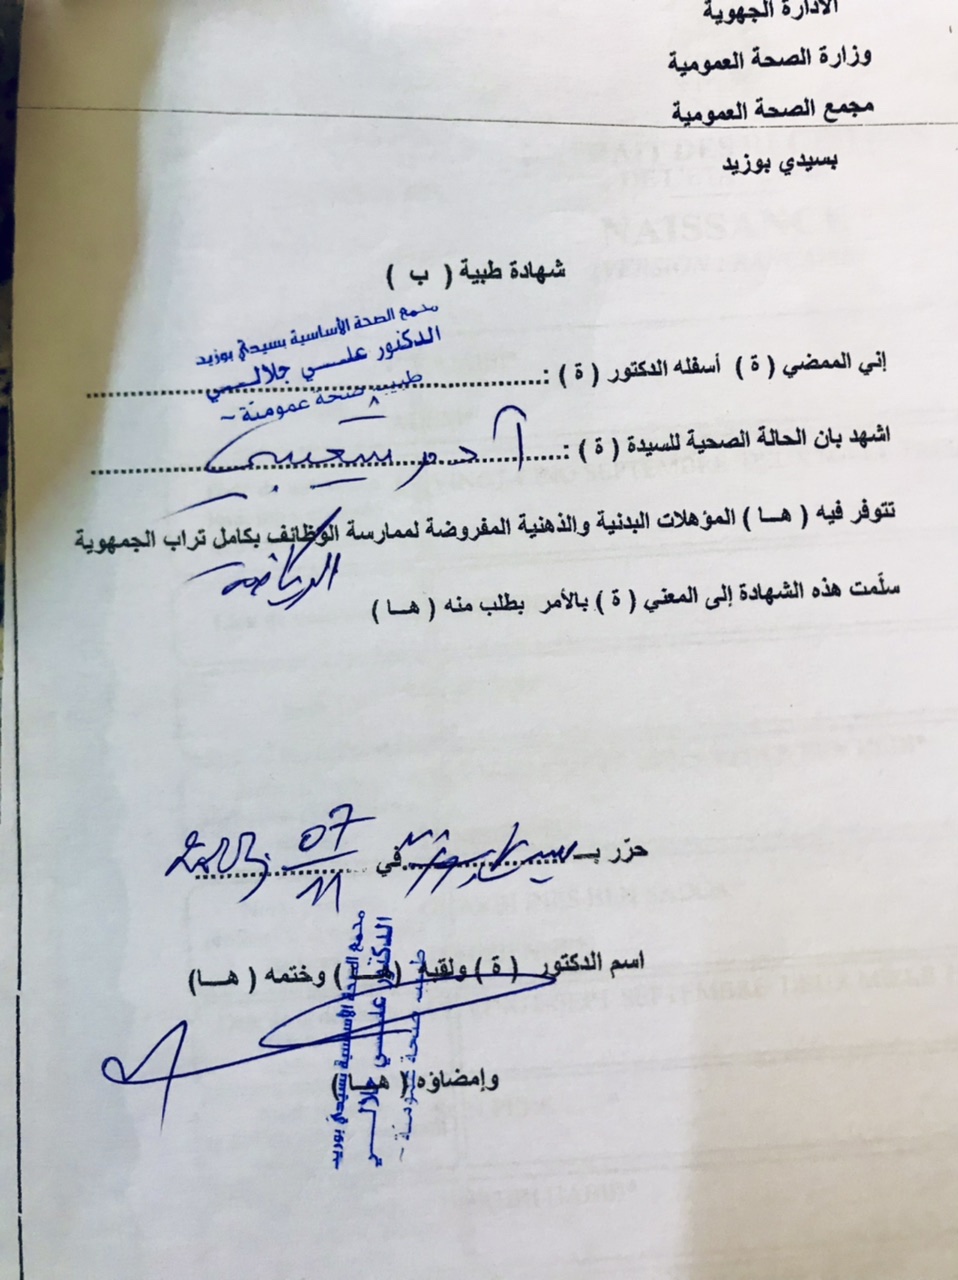 الادارة الجهوية
وزارة الصحة العمومية
مجمع الصحة العمومية
بسيدي بوزيد
شهادة طبية ( ب )
مجمع الصحة الأساسية بسيدي بوزيد
الدكتور علي جلالي
طبيب صحة عمومية
إني الممضي ( ة ) أسفله الدكتور ( ة ) :
اشهد بان الحالة الصحية للسيدة ( ة ) : آدم
تتوفر فيه ( هـا ) المؤهلات البدنية والذهنية المفروضة لممارسة الوظائف بكامل تراب الجمهوية
الرياضة
سلّمت هذه الشهادة إلى المعني ( ة ) بالأمر بطلب منه ( هـا )
حرّر بـ سيدي بوزيد في 07/11/2023
اسم الدكتور ( ة ) ولقبه ( هـا ) وختمه ( هـا )
وإمضاؤه ( هـا )
مجمع الصحة الأساسية بسيدي بوزيد
الدكتور علي جلالي
طبيب صحة عمومية